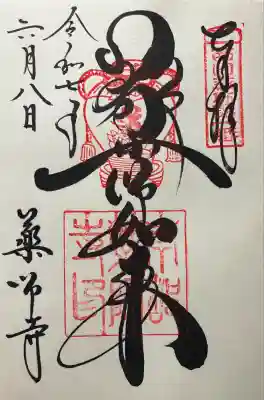 奉拝
薬師如来
令和七年
六月八日
薬師寺